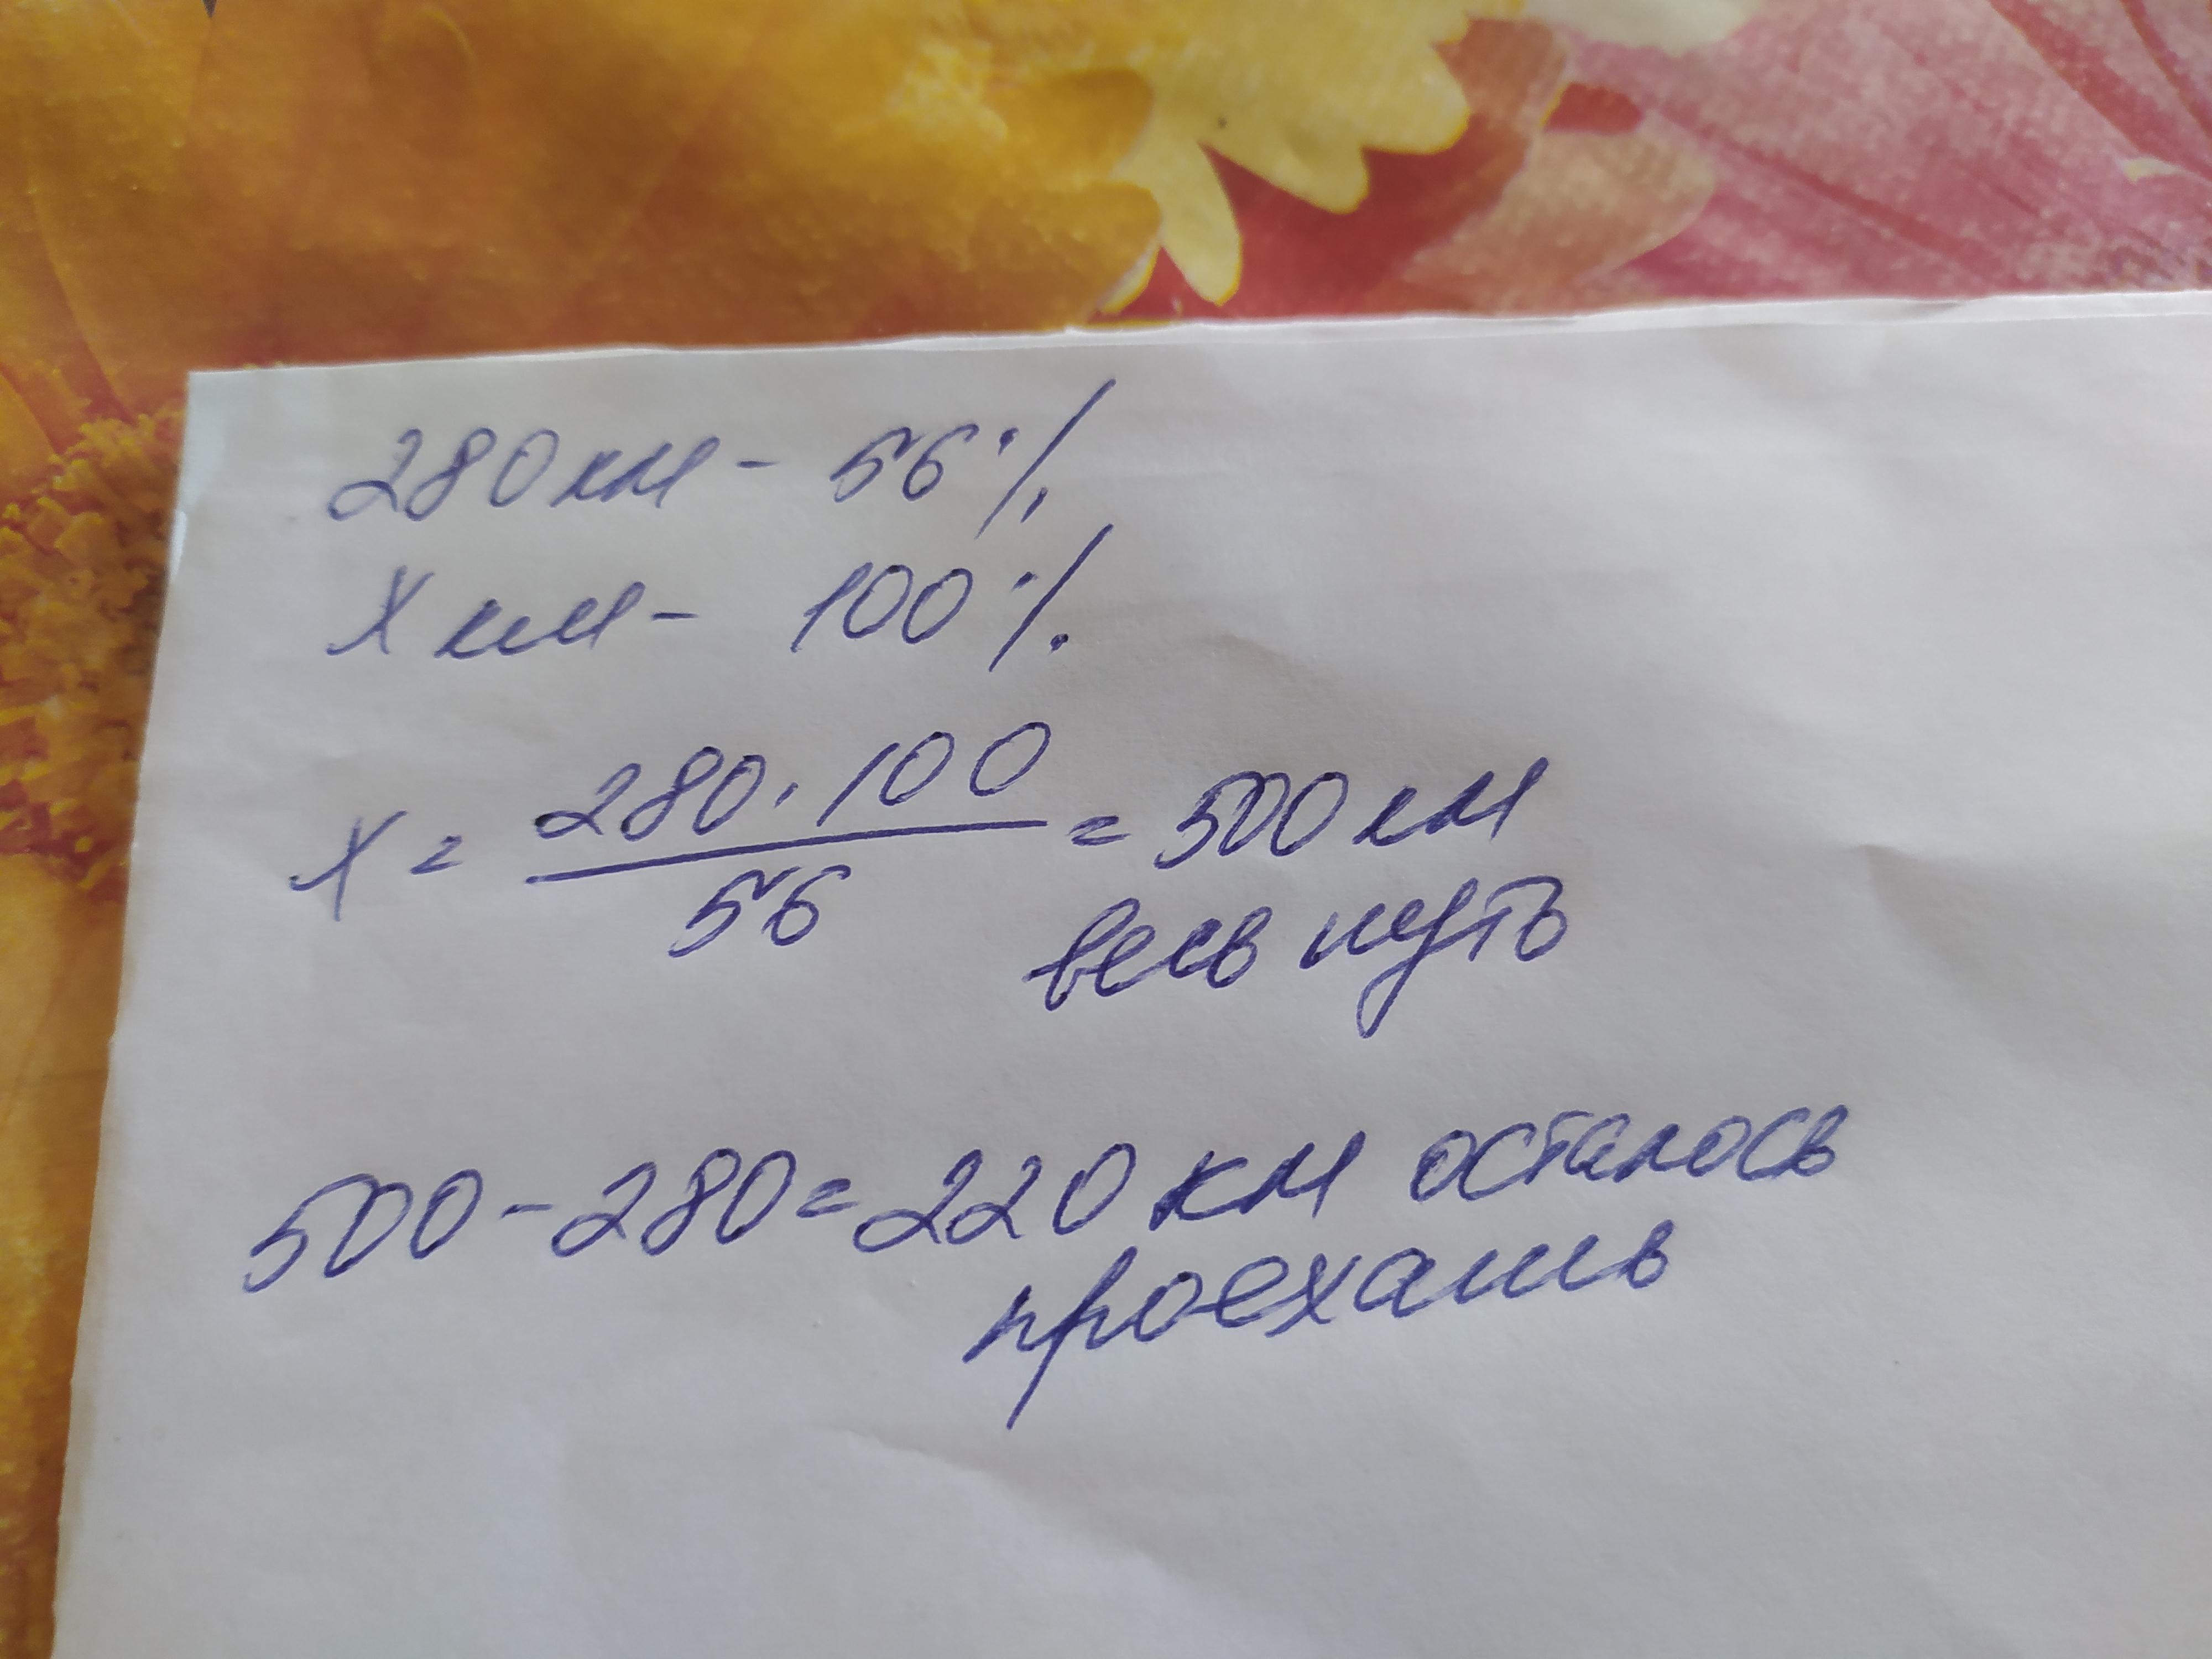 280 км - 56 %
X км - 100 %
X = 280 · 100 / 56 = 500 км
весь путь
500 - 280 = 220 км осталось
проехать